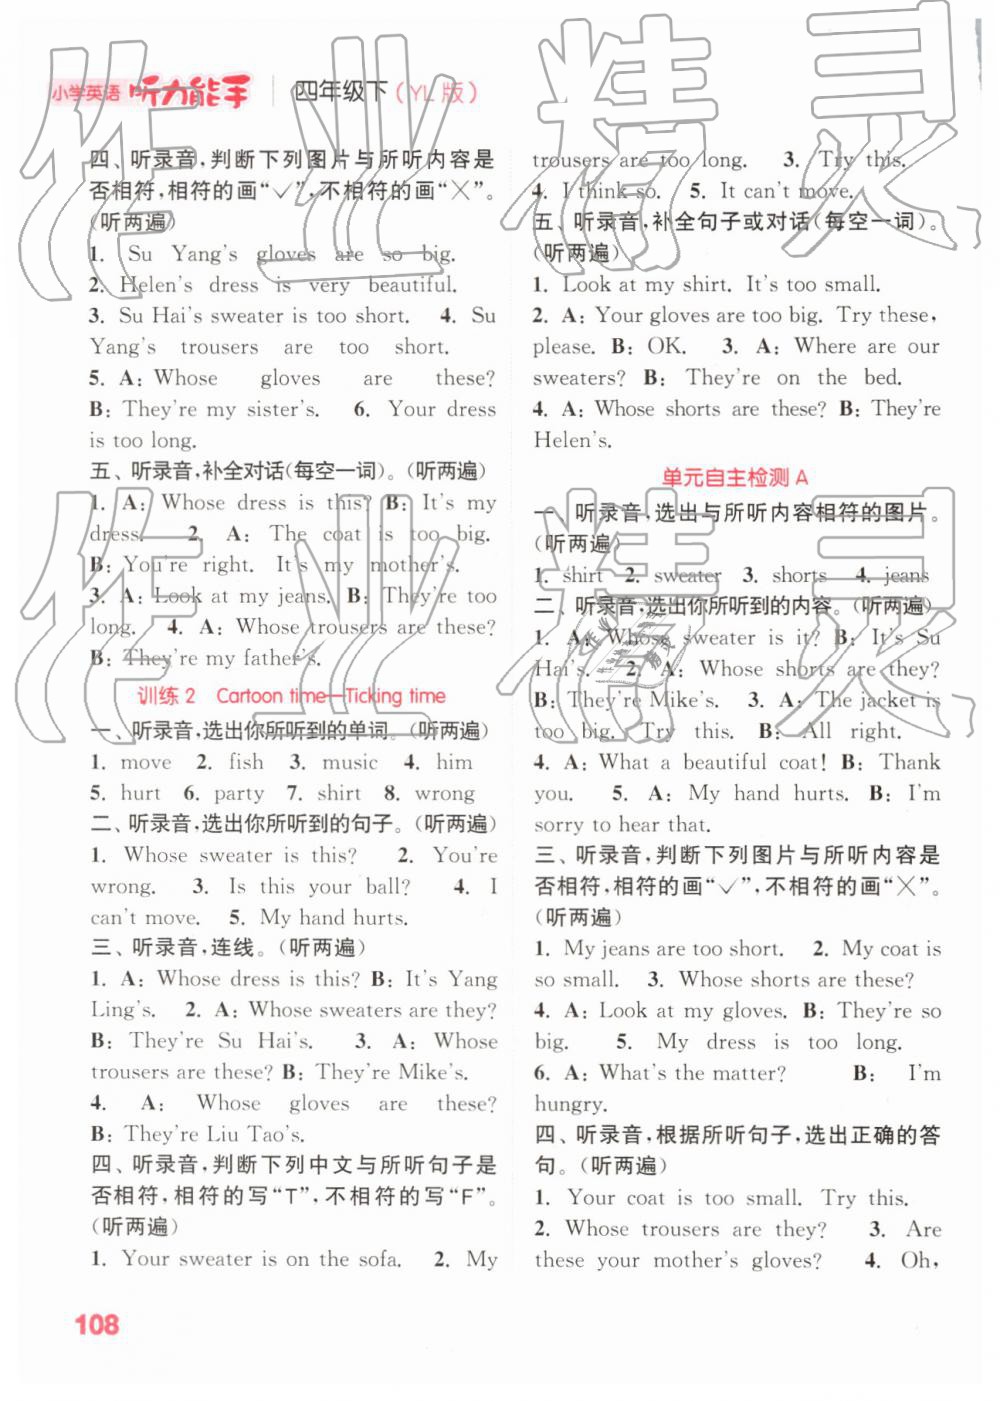 小学英语 听力能手 四年级下（YL版）
四、听录音,判断下列图片与所听内容是
否相符,相符的画“✓”,不相符的画“×”。
(听两遍)
1. Su Yang's gloves are so big.
2. Helen's dress is very beautiful.
3. Su Hai's sweater is too short. 4. Su
Yang's trousers are too short.
5. A: Whose gloves are these?
B: They're my sister's. 6. Your dress
is too long.
五、听录音,补全对话(每空一词)。(听两遍)
1. A: Whose dress is this? B: It's my
dress. 2. A: The coat is too big.
B: You're right. It's my mother's.
3. A: Look at my jeans. B: They're too
long. 4. A: Whose trousers are these?
B: They're my father's.
训练2 Cartoon time—Ticking time
一、听录音,选出你所听到的单词。(听两遍)
1. move 2. fish 3. music 4. him
5. hurt 6. party 7. shirt 8. wrong
二、听录音,选出你所听到的句子。(听两遍)
1. Whose sweater is this? 2. You're
wrong. 3. Is this your ball? 4. I
can't move. 5. My hand hurts.
三、听录音,连线。(听两遍)
1. A: Whose dress is this? B: It's Yang
Ling's. 2. A: Whose sweaters are they?
B: They're Su Hai's. 3. A: Whose
trousers are these? B: They're Mike's.
4. A: Whose gloves are these?
B: They're Liu Tao's.
四、听录音,判断下列中文与所听句子是
否相符,相符的写“T”,不相符的写“F”。
(听两遍)
1. Your sweater is on the sofa. 2. My
trousers are too long. 3. Try this.
4. I think so. 5. It can't move.
五、听录音,补全句子或对话(每空一词)。
(听两遍)
1. Look at my shirt. It's too small.
2. A: Your gloves are too big. Try these,
please. B: OK. 3. A: Where are our
sweaters? B: They're on the bed.
4. A: Whose shorts are these? B: They're
Helen's.
单元自主检测 A
一、听录音,选出与所听内容相符的图片。
(听两遍)
1. shirt 2. sweater 3. shorts 4. jeans
二、听录音,选出你所听到的内容。(听两遍)
1. A: Whose sweater is it? B: It's Su
Hai's. 2. A: Whose shorts are they?
B: They're Mike's. 3. A: The jacket is
too big. Try this. B: All right.
4. A: What a beautiful coat! B: Thank
you. 5. A: My hand hurts. B: I'm
sorry to hear that.
三、听录音,判断下列图片与所听内容是
否相符,相符的画“✓”,不相符的画“×”。
(听两遍)
1. My jeans are too short. 2. My coat is
so small. 3. Whose shorts are these?
4. A: Look at my gloves. B: They're so
big. 5. My dress is too long.
6. A: What's the matter? B: I'm
hungry.
四、听录音,根据所听句子,选出正确的答
句。(听两遍)
1. Your coat is too small. Try this.
2. Whose trousers are they? 3. Are
these your mother's gloves? 4. Oh,
108
作业精灵
作业精灵
作业精灵